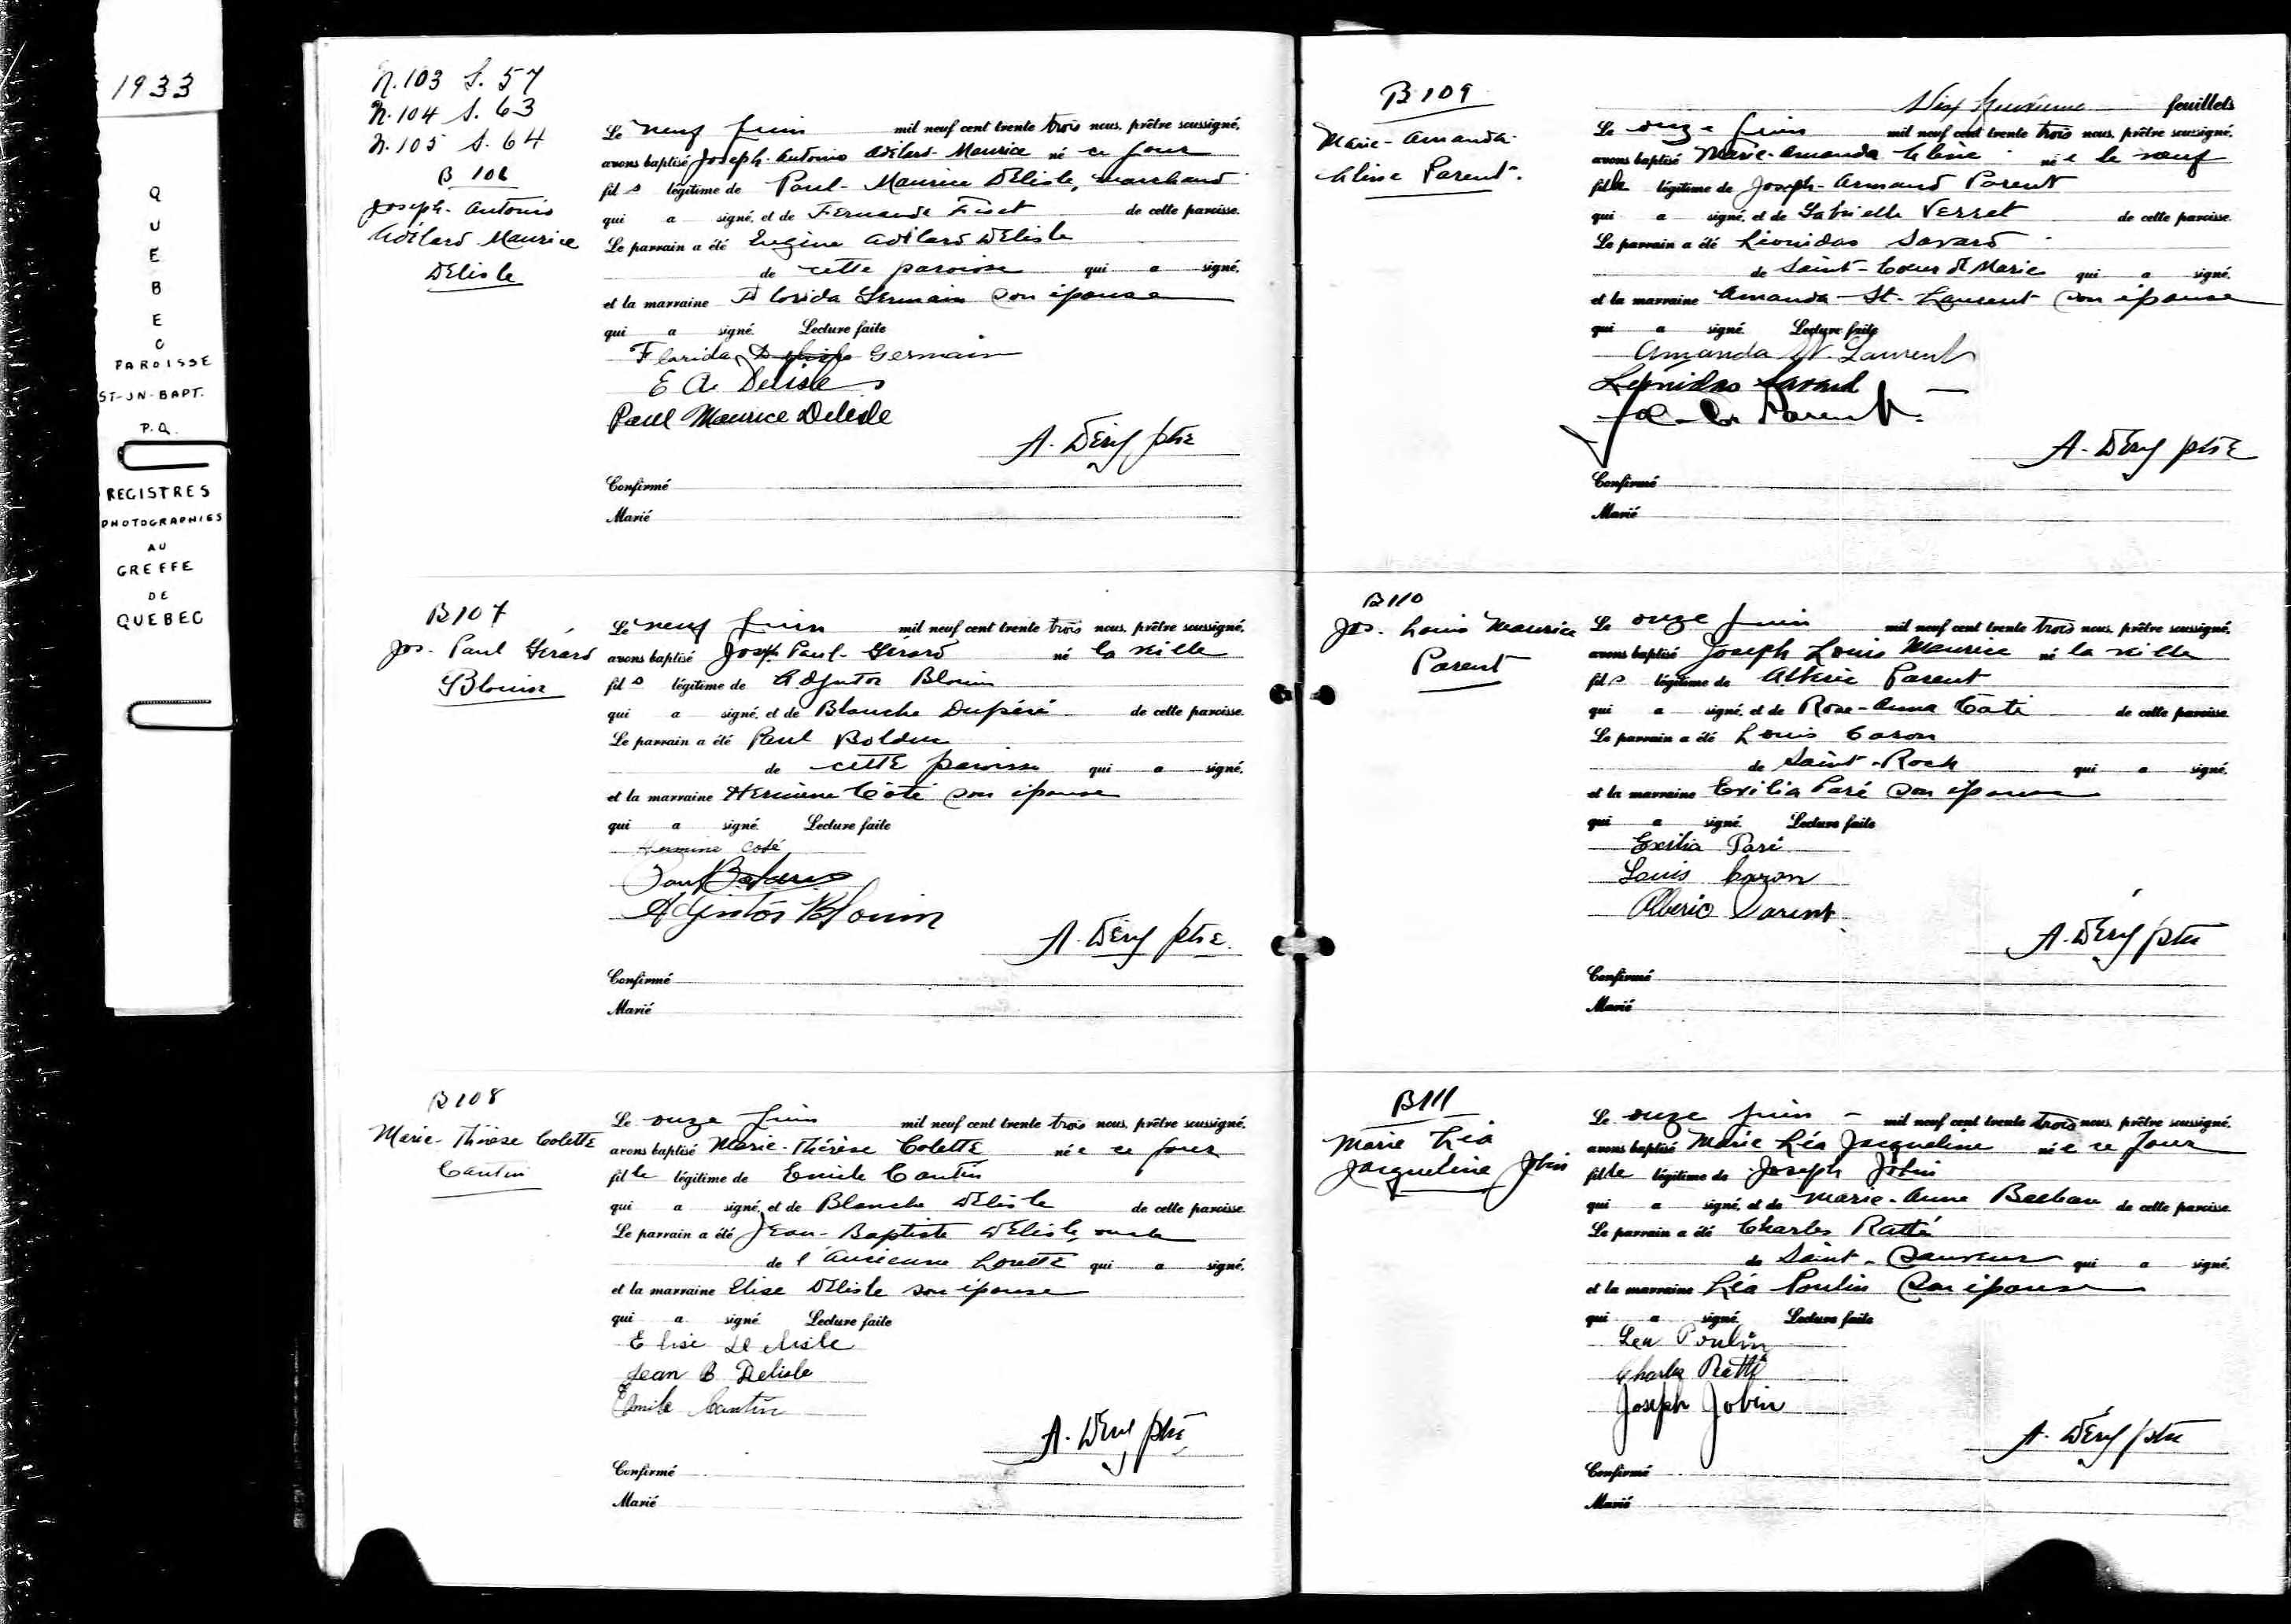 1933
Q
U
E
B
E
C
PAROISSE
ST-JN-BAPT.
P.Q.
REGISTRES
PHOTOGRAPHIES
AU
GREFFE
DE
QUEBEC
N.103 S. 57
N.104 S. 63
N.105 S. 64
B 106
Joseph-Antonio
Adélard-Maurice
Delisle
Le neuf juin mil neuf cent trente trois nous, prêtre soussigné,
avons baptisé Joseph-Antonio Adélard-Maurice né ce jour
fils légitime de Paul-Maurice Delisle, marchand
qui a signé, et de Fernande Fiset de cette paroisse.
Le parrain a été Eugène Adélard Delisle
de cette paroisse qui a signé,
et la marraine Florida Germain son épouse
qui a signé. Lecture faite
Florida Germain
E A Delisle
Paul Maurice Delisle
A. Déry ptre
Confirmé
Marié
B107
Jos-Paul Gérard
Blouin
Le neuf juin mil neuf cent trente trois nous, prêtre soussigné,
avons baptisé Joseph Paul-Gérard né la veille
fils légitime de Adjutor Blouin
qui a signé, et de Blanche Dupéré de cette paroisse.
Le parrain a été Paul Bolduc
de cette paroisse qui a signé,
et la marraine Hermine Côté son épouse
qui a signé. Lecture faite
Hermine Coté
Paul Bolduc
Adjutor Blouin
A. Déry ptre.
Confirmé
Marié
B108
Marie-Thérèse Colette
Cantin
Le onze juin mil neuf cent trente trois nous, prêtre soussigné,
avons baptisé Marie-Thérèse Colette née ce jour
fille légitime de Emile Cantin
qui a signé, et de Blanche Delisle de cette paroisse.
Le parrain a été Jean-Baptiste Delisle, oncle
de l'Ancienne Lorette qui a signé,
et la marraine Elise Delisle son épouse
qui a signé. Lecture faite
Elise Delisle
Jean B Delisle
Emile Cantin
A. Déry ptre
Confirmé
Marié
B 109
Marie-Amanda
Céline Parent.
Dix neuvième feuillets
Le onze juin mil neuf cent trente trois nous, prêtre soussigné,
avons baptisé Marie-Amanda Céline née le neuf
fille légitime de Joseph-Armand Parent
qui a signé, et de Gabrielle Verret de cette paroisse.
Le parrain a été Léonidas Savard
de Saint-Coeur de Marie qui a signé.
et la marraine Amanda St-Laurent son épouse
qui a signé. Lecture faite
Amanda St. Laurent
Léonidas Savard
Parent
A. Déry ptre
Confirmé
Marié
B110
Jos. Louis Maurice
Parent
Le onze juin mil neuf cent trente trois nous, prêtre soussigné,
avons baptisé Joseph Louis Maurice né la veille
fils légitime de Albéric Parent
qui a signé, et de Rose-Anna Côté de cette paroisse.
Le parrain a été Louis Caron
de Saint-Roch qui a signé,
et la marraine Exilia Paré son épouse
qui a signé. Lecture faite
Exilia Paré
Louis Caron
Alberic Parent
A. Déry ptre
Confirmé
Marié
B111
Marie Léa
Jacqueline Jobin
Le onze juin mil neuf cent trente trois nous, prêtre soussigné,
avons baptisé Marie Léa Jacqueline née ce jour
fille légitime de Joseph Jobin
qui a signé, et de Marie-Anne de cette paroisse.
Le parrain a été Charles Ratté
de Saint-Sauveur qui a signé.
et la marraine Léa Poulin son épouse
qui a signé. Lecture faite
Lea Poulin
Charles Ratté
Joseph Jobin
A. Déry ptre
Confirmé
Marié